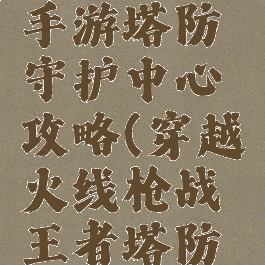 手游塔防
守护中心
攻略(穿越
火线枪战
王者塔防